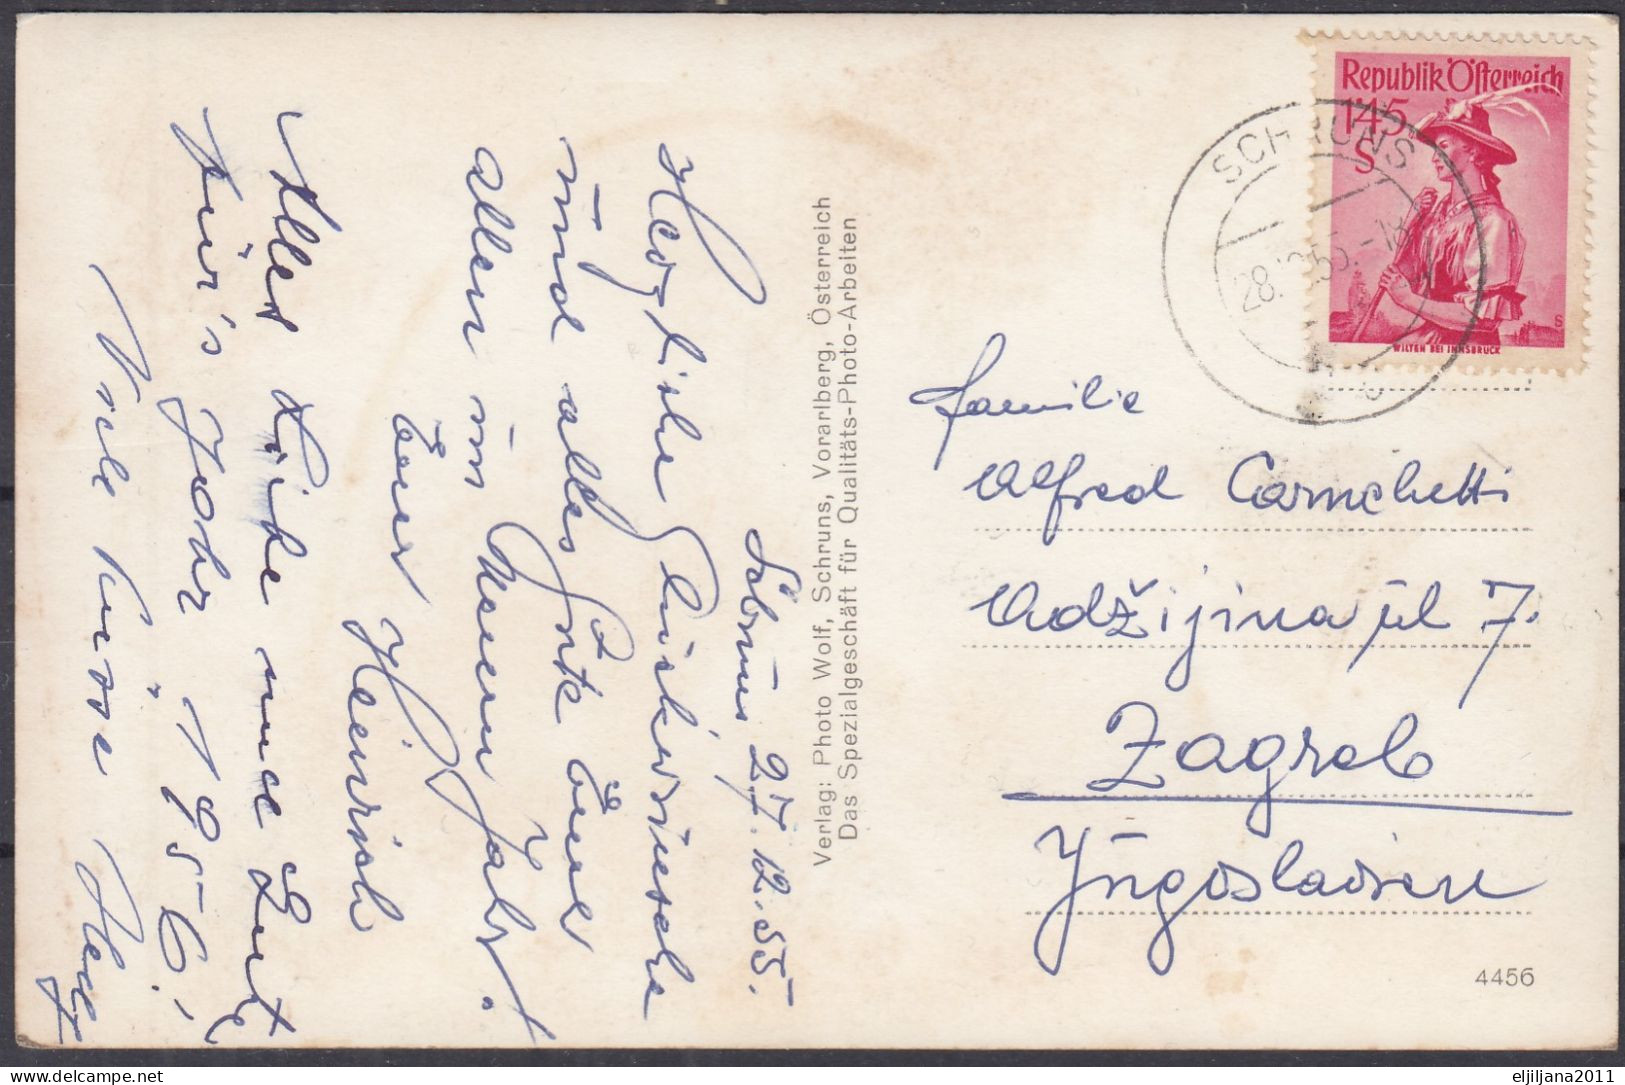 Schruns 27.12.55.
Herzliche Glückwünsche
und alles Gute Euer
allen im Neuen Jahr!
Euer Heinrich
Alles Liebe und Gute
für's Jahr 1956!
Viele Küsse Hedy
Verlag: Photo Wolf, Schruns, Vorarlberg, Österreich
Das Spezialgeschäft für Qualitäts-Photo-Arbeiten
Republik Österreich
1.45
S
WILTEN BEI INNSBRUCK
SCHRUNS
28.12.55.-18
Familie
Alfred Carnelutti
Adžijina ul 7.
Zagreb
Jugoslavien
4456
eljiljana2011